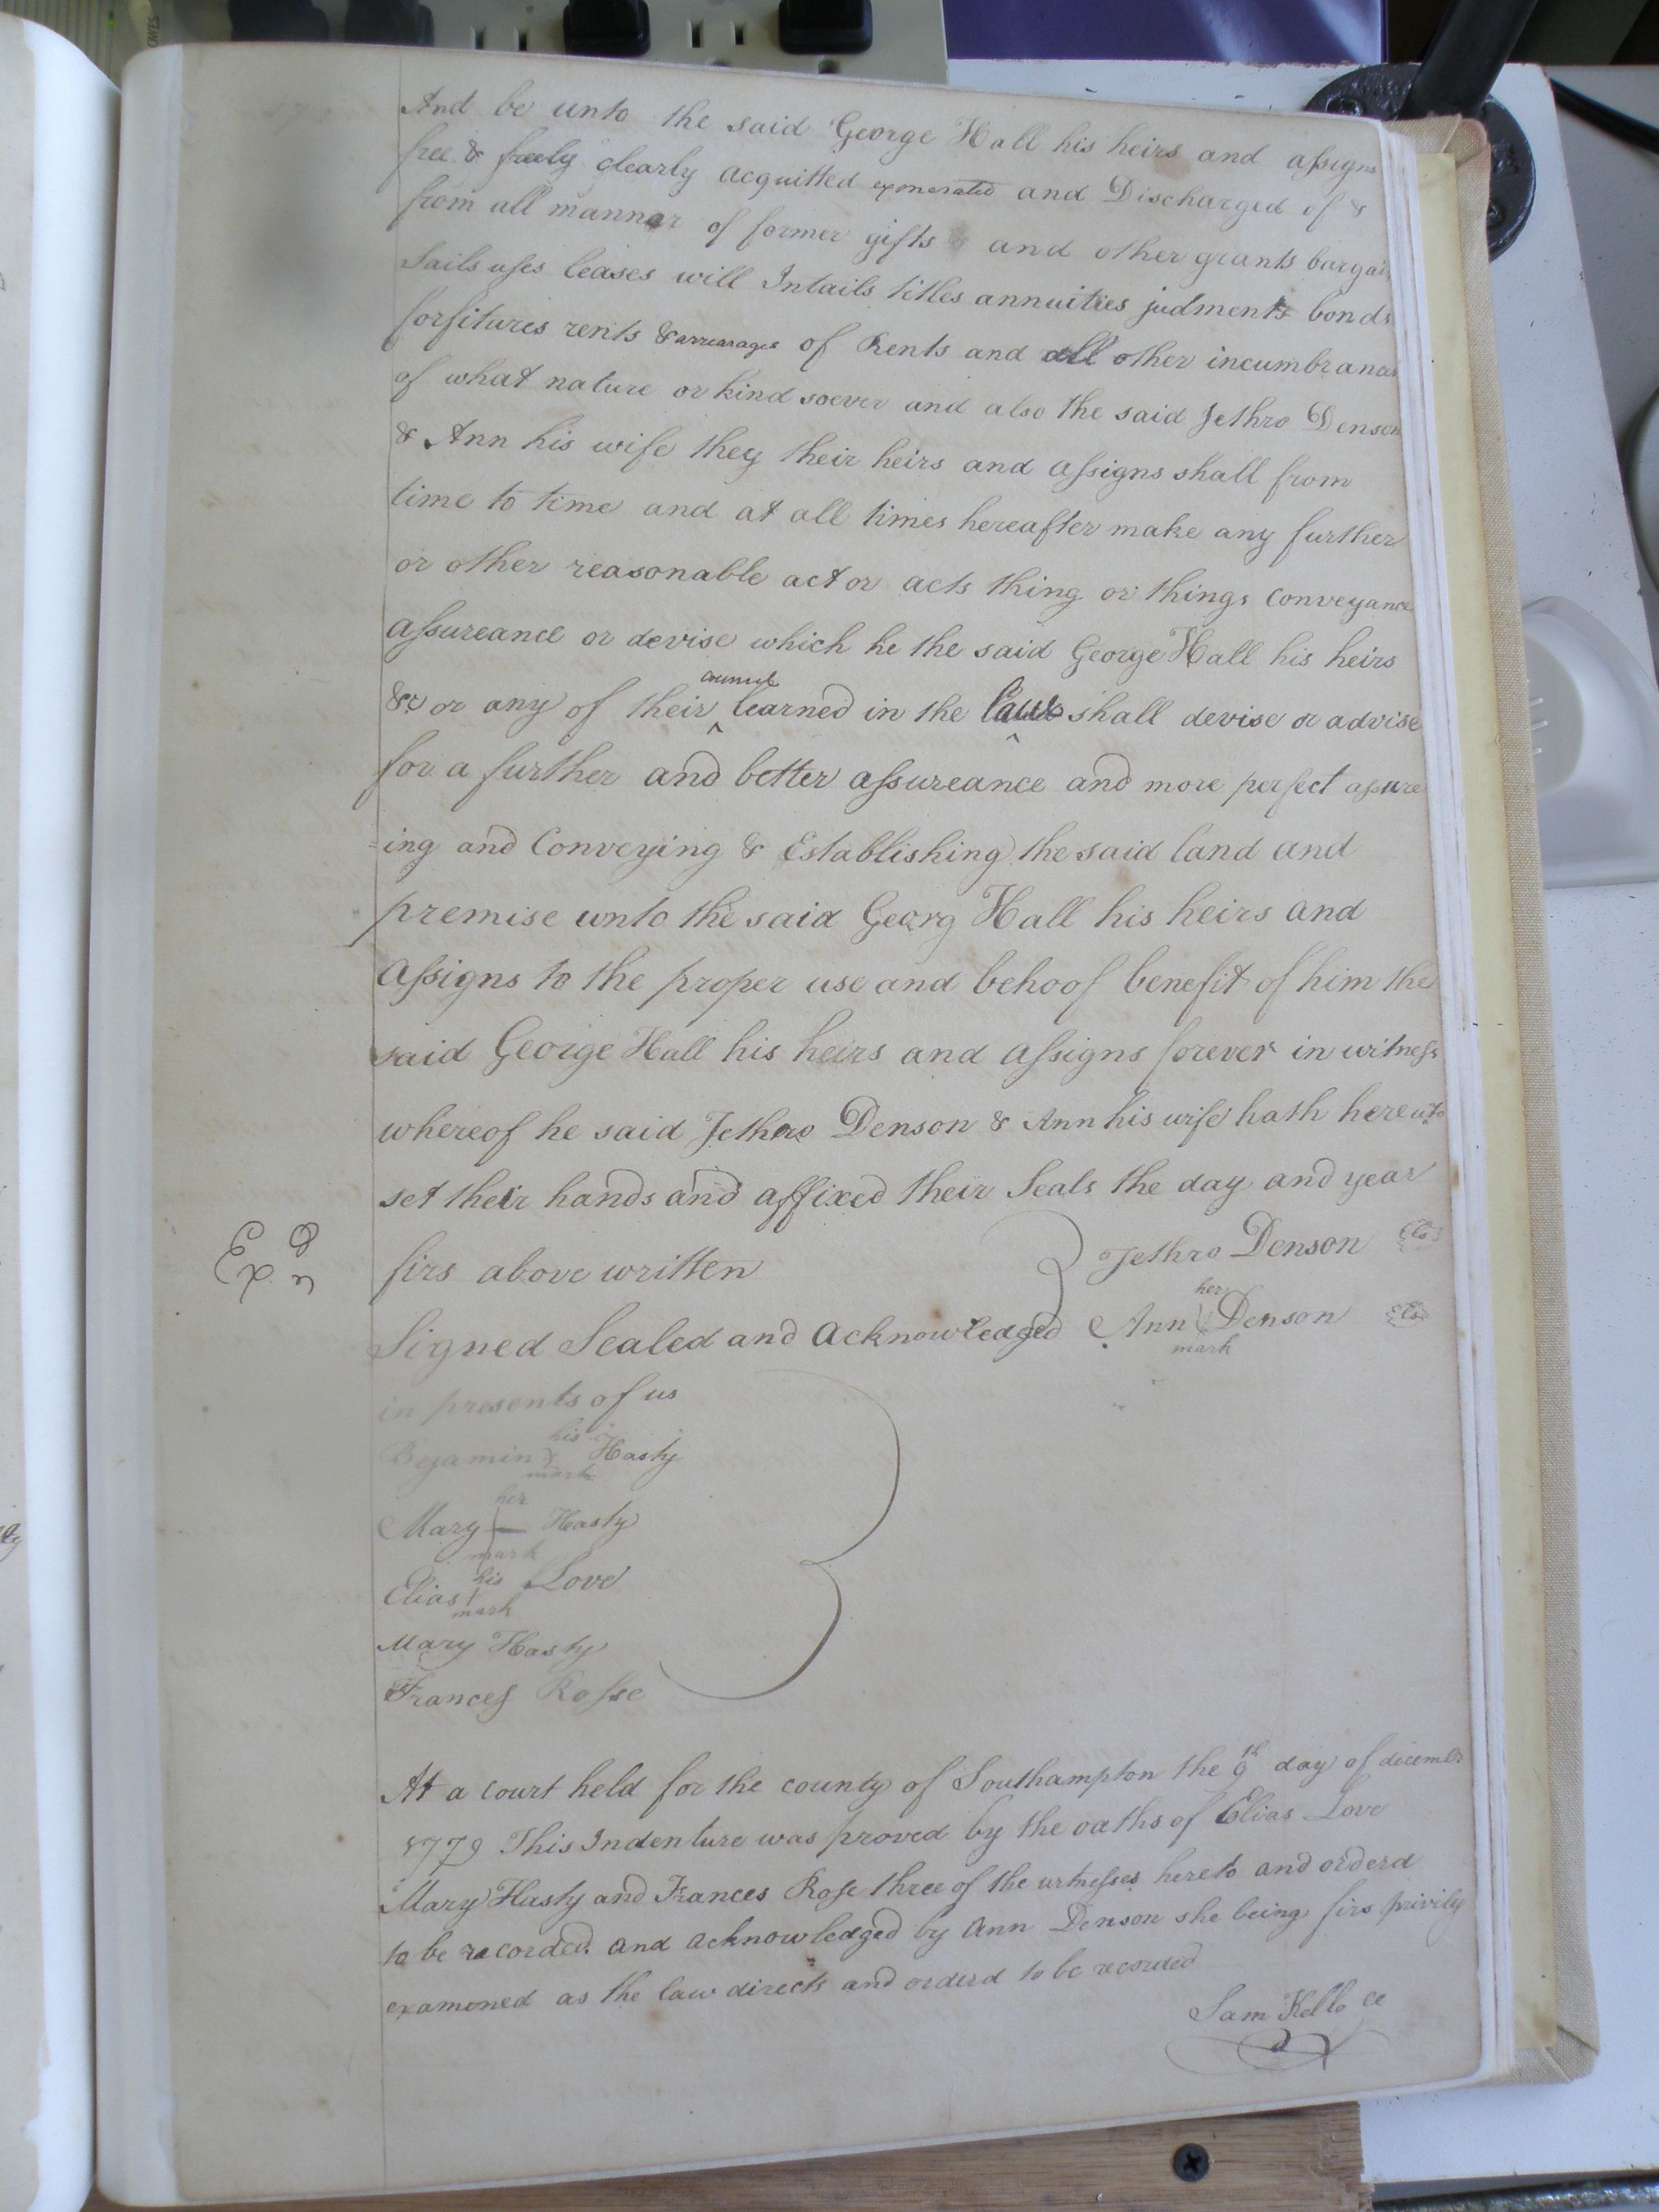 And be unto the said George Hall his heirs and assigns
free & freely clearly acquitted exonerated and Discharged of &
from all mannar of former gifts and other grants bargain
Sails uses leases will Intails titles annuities judments bonds
forfitures rents & arrearages of Rents and all other incumbrances
of what nature or kind soever and also the said Jethro Denson
& Ann his wife they their heirs and assigns shall from
time to time and at all times hereafter make any further
or other reasonable act or acts thing or things Conveyance
assureance or devise which he the said George Hall his heirs
councel
&c or any of their learned in the law shall devise or advise
for a further and better assureance and more perfect assure
=ing and Conveying & Establishing the said land and
premise unto the said Georg Hall his heirs and
assigns to the proper use and behoof benefit of him the
said George Hall his heirs and assigns forever in witness
whereof he said Jethro Denson & Ann his wife hath hereunto
set their hands and affixed their Seals the day and year
Exd
firs above written
Jethro Denson
Signed Sealed and acknowledged
her
Ann Denson
mark
in presents of us
his
Bejamin Hasty
mark
her
Mary Hasty
mark
his
Elias Love
mark
Mary Hasty
Frances Rosse
At a court held for the county of Southampton the 9th day of decembr
1779 This Indenture was proved by the oaths of Elias Love
Mary Hasty and Frances Rose three of the witnesses hereto and orderd
to be recorded and acknowledged by Ann Denson she being firs privily
examened as the law directs and orderd to be recorded
Sam Kello